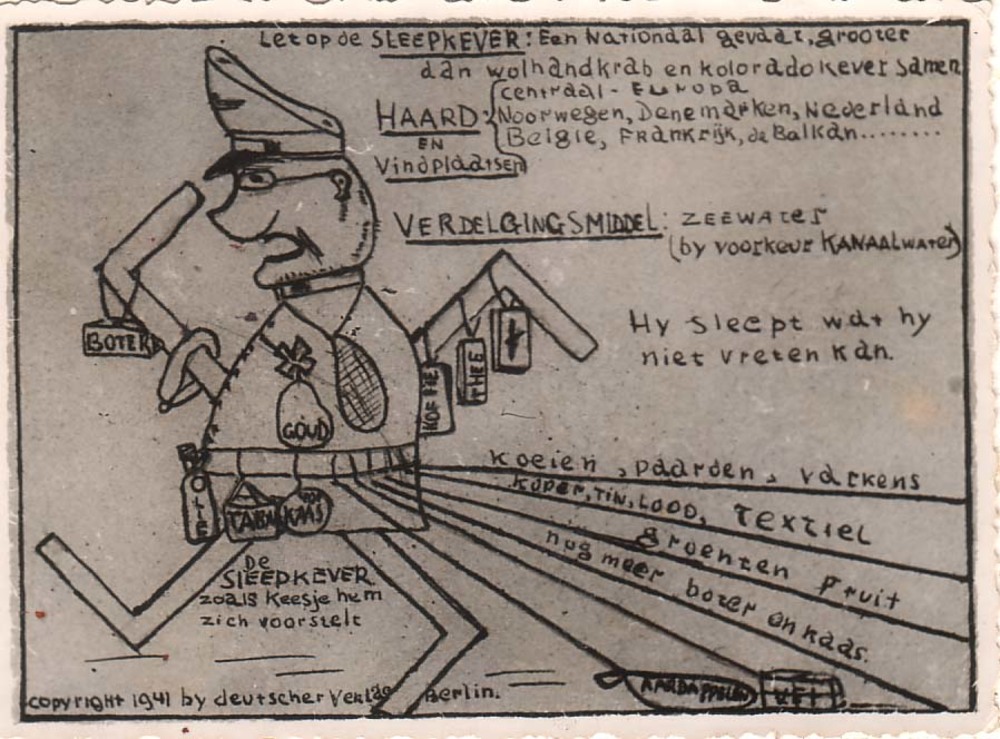 Let op de SLEEPKEVER: Een Nationaal gevaar, grooter
dan wolhandkrab en koloradokever samen
HAARD:
EN
Vindplaatsen
centraal - EUROPA
Noorwegen, Denemarken, Nederland
België, FRANKRIJK, de Balkan........
VERDELGINGSMIDDEL: ZEEWATER
(by voorkeur KANAALWATER)
Hy sleept wat hy
niet vreten kan.
BOTER
KOFFIE
THEE
GOUD
OLIE
TABAK
KAAS
koeien, paarden, varkens
KOPER, TIN, LOOD, TEXTIEL
groenten fruit
nog meer boter en kaas.
AARDAPPELEN
VET
DE
SLEEPKEVER
zoals Keesje hem
zich voorstelt
copyright 1941 by deutscher Verlag Berlin.